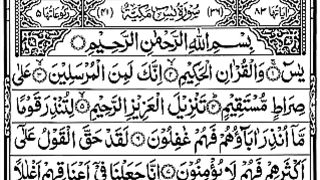 اٰیاتها ۸۳ (۳۶) سُوْرَةُ یٰسٓ مَكِّیَّةٌ (۴۱) رکوعاتها ۵
بِسْمِ اللّٰهِ الرَّحْمٰنِ الرَّحِیْمِ
یٰسٓ ۚ وَالْقُرْاٰنِ الْحَكِیْمِ ۙ اِنَّكَ لَمِنَ الْمُرْسَلِیْنَ ۙ عَلٰی
صِرَاطٍ مُّسْتَقِیْمٍ ؕ تَنْزِیْلَ الْعَزِیْزِ الرَّحِیْمِ ۙ لِتُنْذِرَ قَوْمًا
مَّاۤ اُنْذِرَ اٰبَآؤُهُمْ فَهُمْ غٰفِلُوْنَ ۶ لَقَدْ حَقَّ الْقَوْلُ عَلٰۤی
اَكْثَرِهِمْ فَهُمْ لَا یُؤْمِنُوْنَ ۷ اِنَّا جَعَلْنَا فِیْۤ اَعْنَاقِهِمْ اَغْلٰلًا